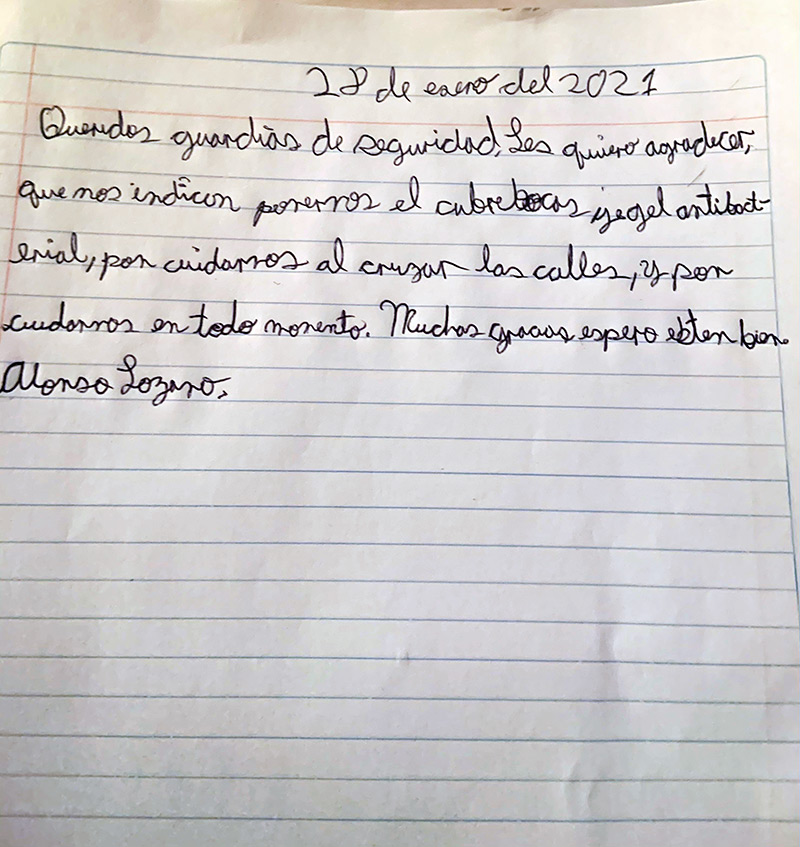 28 de enero del 2021
Queridos guardias de seguridad, Les quiero agradecer,
que nos indican ponernos el cubrebocas y el gel antibact-
erial, por cuidarnos al cruzar las calles, y por
cuidarnos en todo momento. Muchas gracias espero esten bien.
Alonso Lozano.